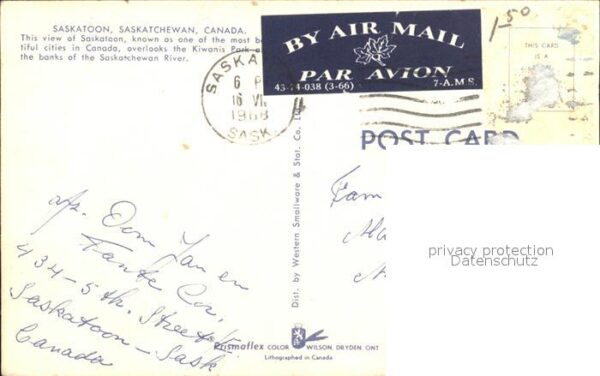 SASKATOON, SASKATCHEWAN, CANADA.
This view of Saskatoon, known as one of the most be
tiful cities in Canada, overlooks the Kiwanis Park
the banks of the Saskatchewan River.
BY AIR MAIL
PAR AVION
43-14-038 (3-66) 7-A.M.S.
1-50
THIS CARD
IS A
SASKA
6 P
16 VII
1968
SASK
POST CARD
Dist. by Western Smallware & Stat. Co. L
Fam
privacy protection
Datenschutz
Oom Jan en
Tante Cor,
434-5th. Street E.
Saskatoon - Sask
Canada
prismaflex COLOR WILSON, DRYDEN, ONT
Lithographed in Canada